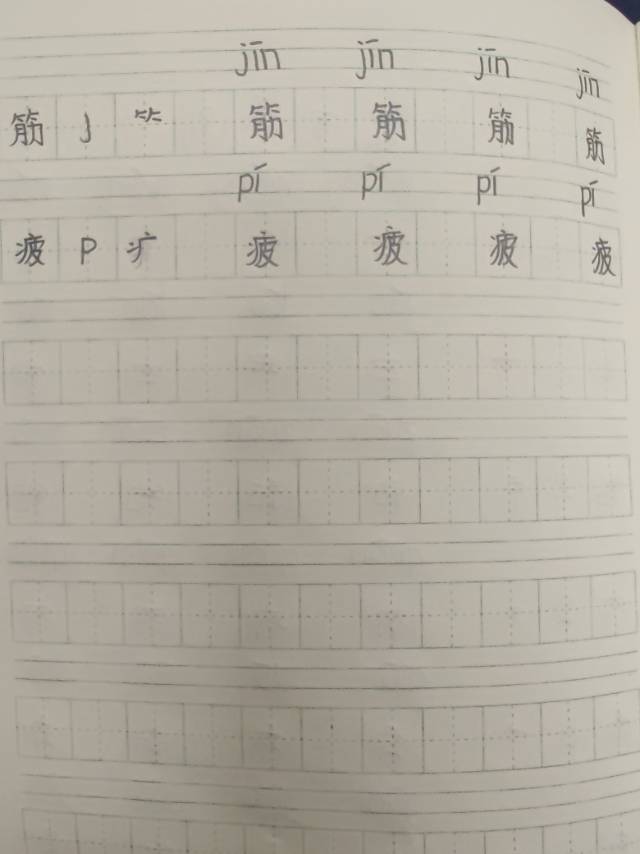 jīn jīn jīn jīn
筋 J ⺮ 筋 筋 筋 筋
pí pí pí pí
疲 P 疒 疲 疲 疲 疲